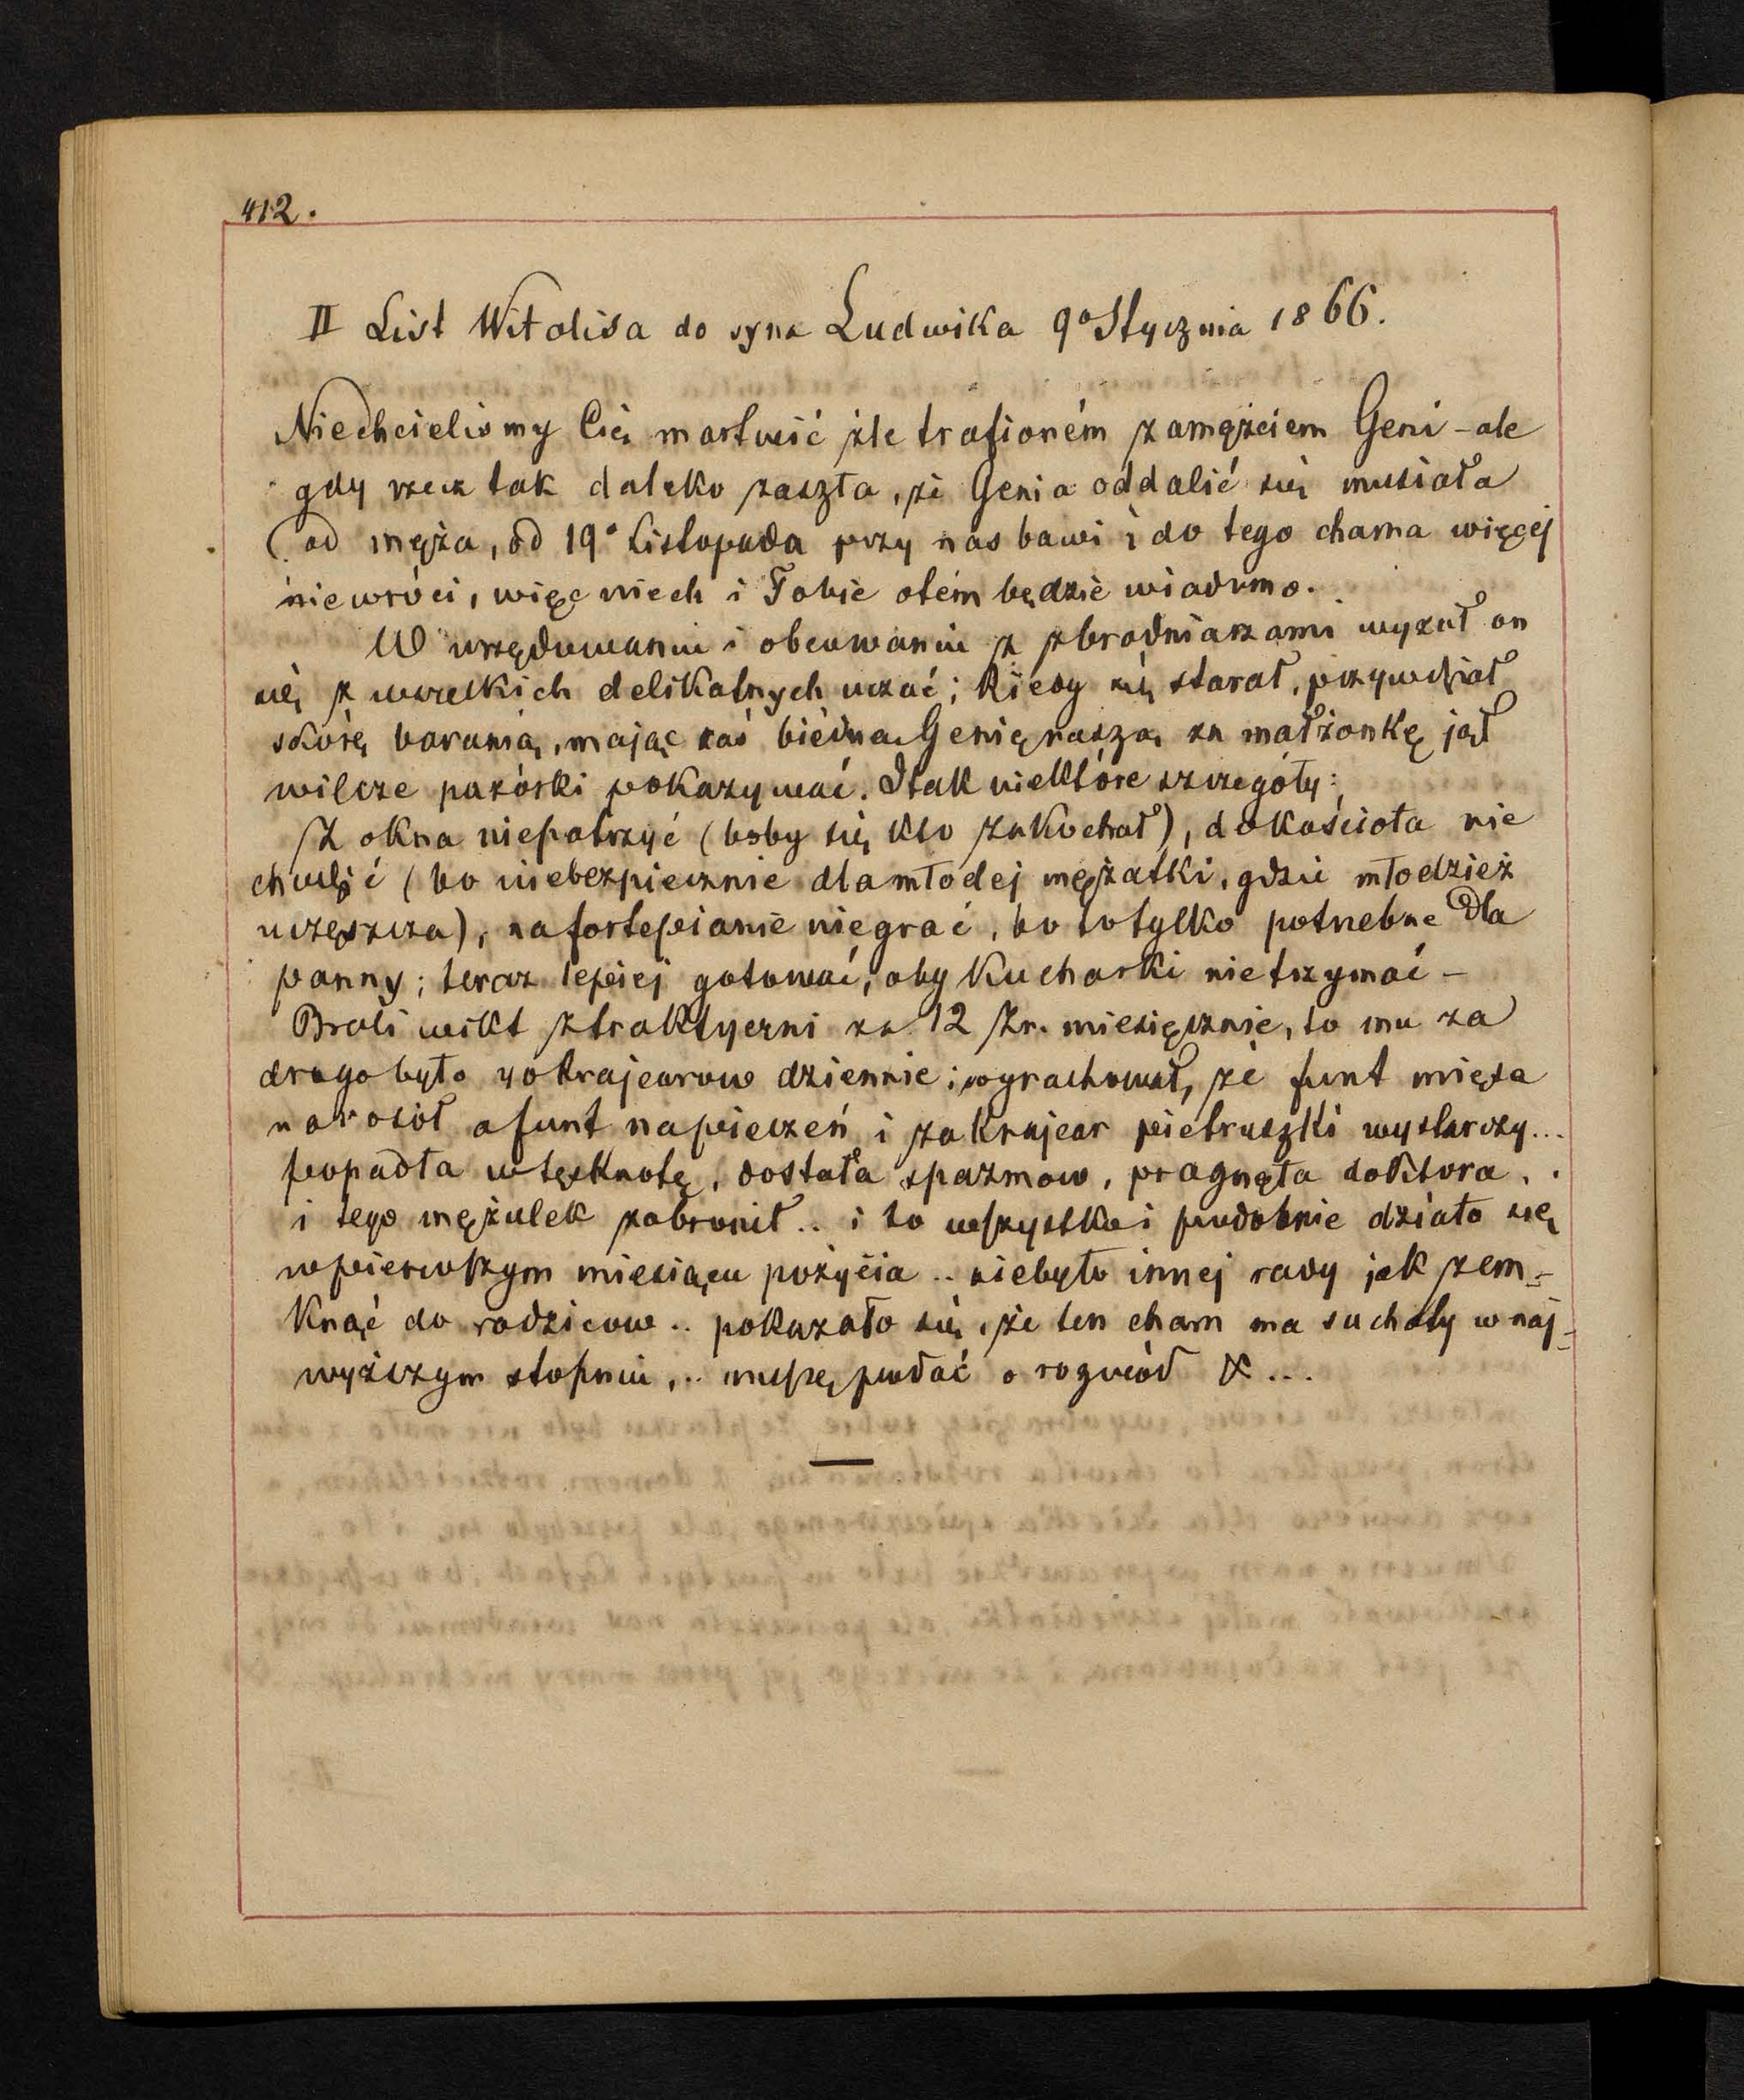 412.
II List Witalisa do syna Ludwika 9o Stycznia 1866.
Niechcieliśmy Cię martwić źle trafioném zamężciem Geni - ale
gdy rzecz tak daleko zaszła, że Genia oddalić się musiała
od męża, od 19o Listopada przy nas bawi i do tego chama więcej
niewróci, więc niech i Tobie otém będzie wiadomo.
W urzędowaniu i obcowaniu z zbrodniarzami wyzuł on
się z wszelkich delikatnych uczuć; Kiedy się starał, przywdział
skórę baranią, mając zaś biédną Genię naszą za małżonkę jął
wilcze pazórki pokazywać. I tak niektóre szczegóły:
Z okna niepatrzyć (boby się kto zakochał), do kościoła nie
chodzić (bo niebezpiecznie dla młodej mężatki, gdzie młodzież
uczęszcza), na fortepianie niegrać, bo to tylko potrzebne dla
panny; teraz lepiej gotować, aby Kucharki nietrzymać -
Brali wikt z traktyerni za 12 Zr. miesięcznie, to mu za
drogo było 40 krajcarow dziennie; wyrachował, że funt mięsa
na rosół a funt na pieczeń i za krajcar pietruszki wystarczy...
popadła w tęsknotę, dostała spazmow, pragnęła doktora, .
i tego mężulek zabronił .. i to wszystko i podobnie działo się
w pierwszym miesiącu pożycia .. niebyło innej rady jak zem-
knąć do rodzicow .. pokazało się, że ten cham ma suchoty w naj-
wyższym stopniu, .. muszę podać o rozwód &...